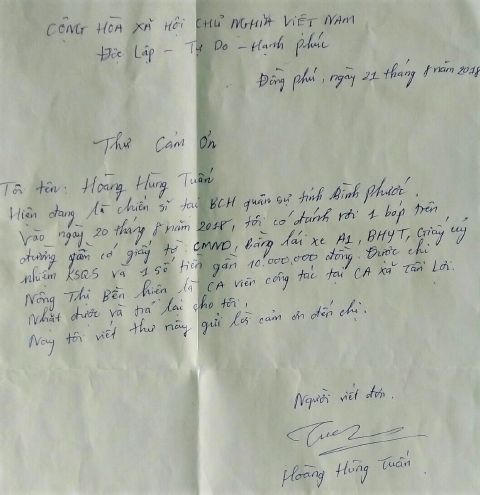 CỘNG HÒA XÃ HỘI CHỦ NGHĨA VIỆT NAM
Độc Lập - Tự Do - Hạnh phúc
Đồng phú, ngày 21 tháng 8 năm 2018
Thư Cảm Ơn
Tôi tên: Hoàng Hùng Tuấn
Hiện đang là chiến sĩ tại BCH quân sự tỉnh Bình Phước.
Vào ngày 20 tháng 8 năm 2018, tôi có đánh rơi 1 bóp trên
đường gần có giấy tờ CMND, Bằng lái xe A1, BHYT, Giấy uỷ
nhiệm KSQS và 1 số tiền gần 10.000.000 đồng. Được chị
Nông Thị Bền hiện là CA viên công tác tại CA xã Tân Lợi.
Nhặt được và trả lại cho tôi.
Nay tôi viết thư này gửi lời cảm ơn đến chị.
Người viết đơn.
Hoàng Hùng Tuấn